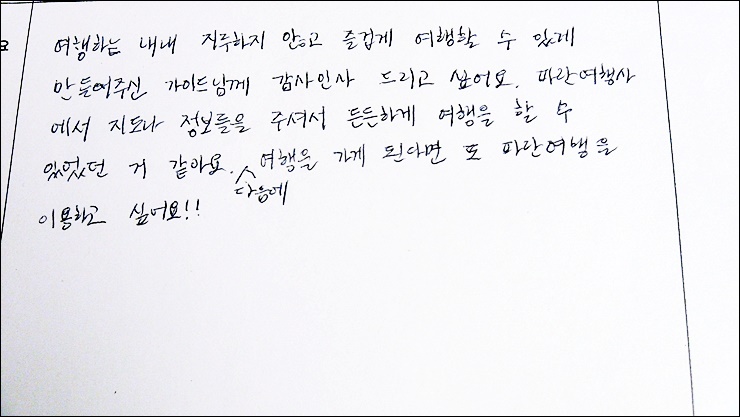 여행하는 내내 지루하지 않고 즐겁게 여행할 수 있게
만들어주신 가이드님께 감사인사 드리고 싶어요. 파란여행사
에서 지도나 정보들을 주셔서 든든하게 여행을 할 수
있었던 거 같아요. 다음에 여행을 가게 된다면 또 파란여행을
이용하고 싶어요!!